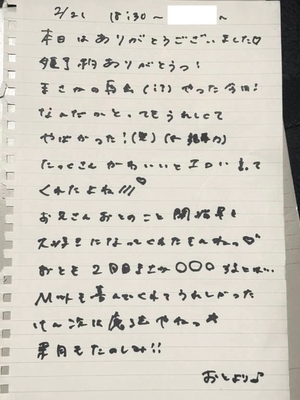 2/21 18:30〜 〜
本日はありがとうございました♡
予約ありがとうっ!
まさかの再会(!?)やった今日!
なんだかとってもうれしくて
やばかった!(笑)
たっくさんかわいいとエロい言って
くれたよね///♡
お兄さんおとのこと開始早々
大好きになってくれたもんねっ♡
おとも2回目まさか〇〇〇するとは...
Mットも喜んでくれてうれしかった
けん次は魔法やねっ★
来月もたのしみ!!
おとより♪